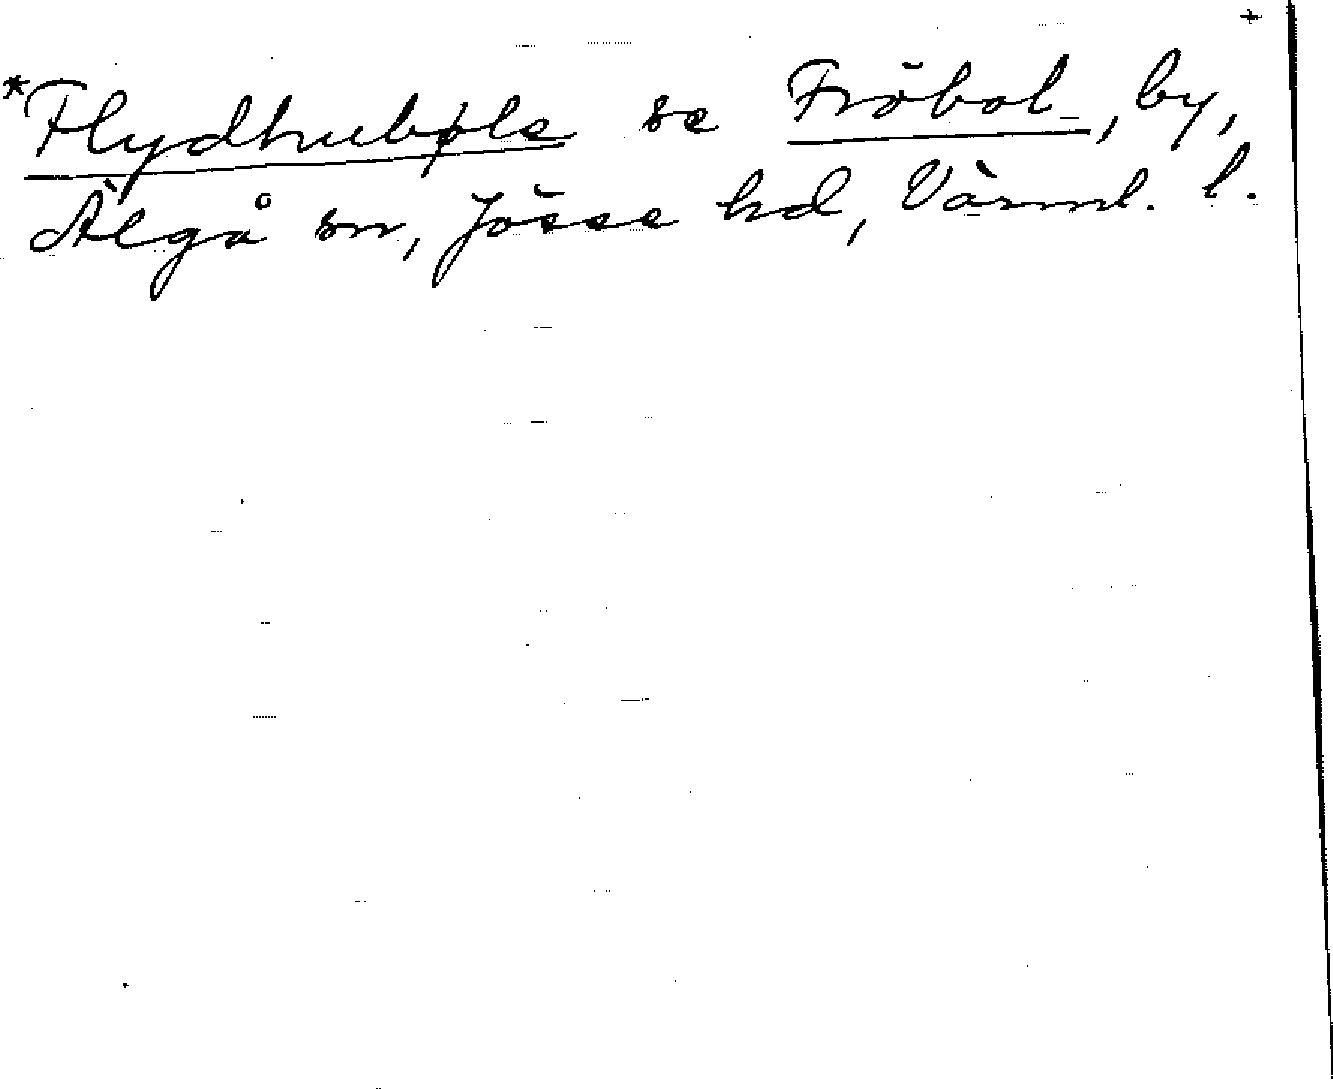 +
*Flydhubøle se Fröbol, by,
Älgå sn, Jösse hd, Värml. l.